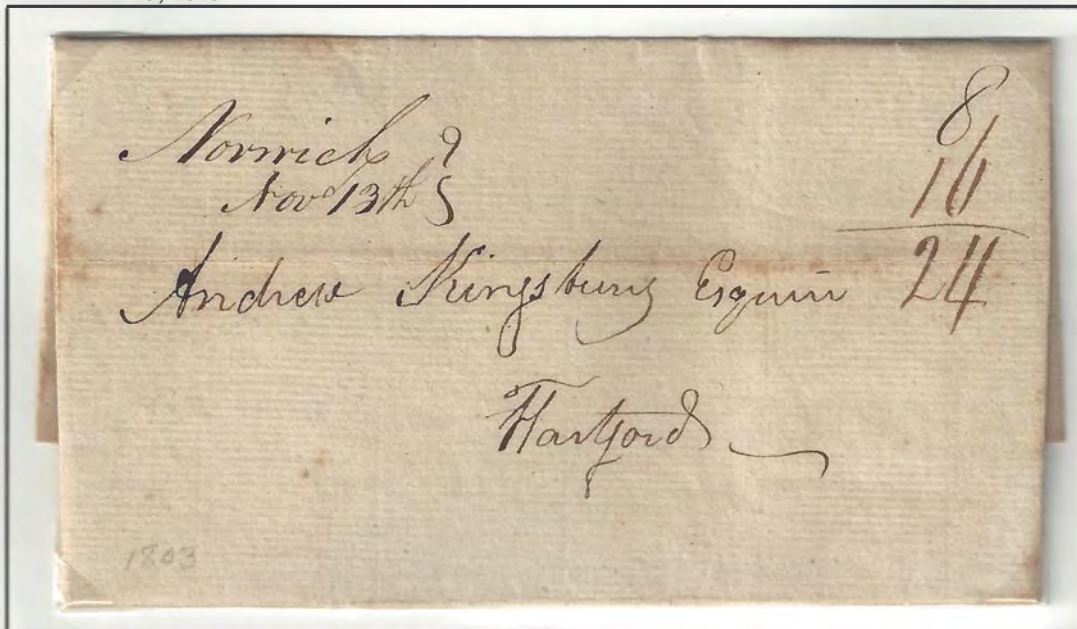 Norwich
Nov 13th
8
16
24
Andrew Kingsbury Esquire
Hartford
1803